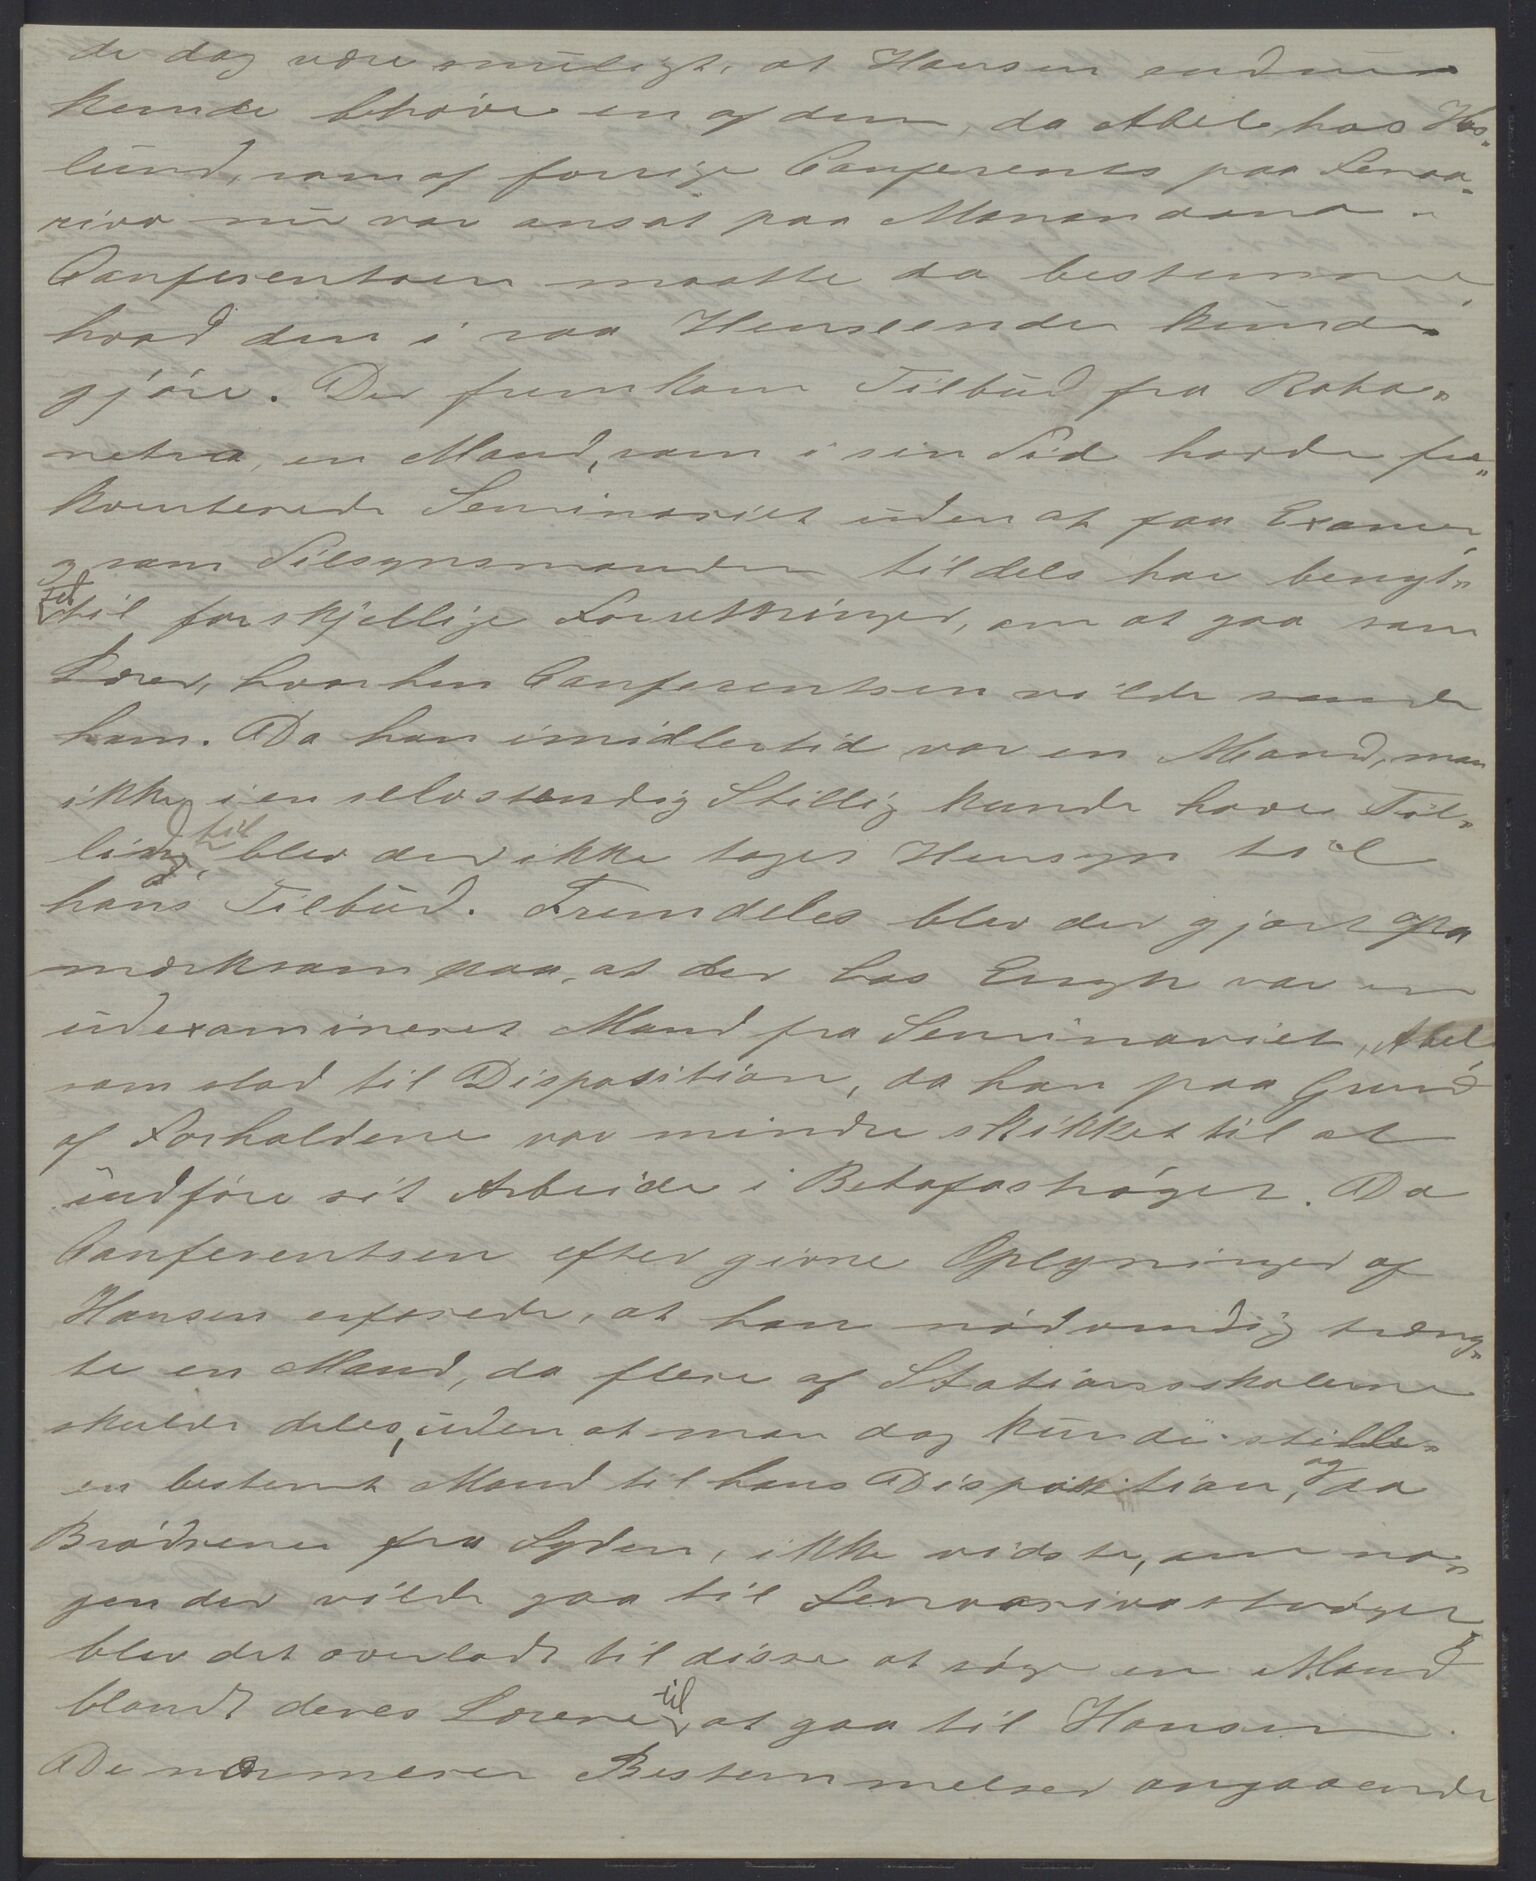 de dog være muligt, at Hansen endnu
kunde behøve en af dem, da Abel hos Has„
lund, som af forrige Conferents paa Fenoa„
rivo nu var ansat paa Manandona.
Conferentsen maatte da bestemme,
hvad den i saa Henseende kunde
gjöre. Der fremkom Tilbud fra Raba„
netra, en Mand, som i sin Tid havde fre„
kventerede Seminariet uden at faa Examen,
g som Tilsynsmanden tildels har benyt„
tet til forskjellige Forretninger, om at gaa som
Lærer, hvorhen Conferentsen vilde sende
ham. Da han imidlertid var en Mand, man
ikke i en selvstændig Stillig kunde have Til„
lid til, blev der ikke taget Hensyn til
hans Tilbud. Fremdeles blev der gjort op„
mærksom paa, at der hos Engh var en
udexamineret Mand fra Seminariet, Abel,
som stod til Disposition, da han paa Grund
af Forholdene var mindre skikket til at
udföre sit Arbeide i Betafoströget. Da
Conferentsen efter givne Oplysninger af
Hansen erfarede, at han nödvendig træng„
te en Mand, da flere af Stationsskolerne
skulde deles, uden at man dog kunde stille
en bestemt Mand til hans Disposition, og da
Brödrene fra Syden, ikke vidste, om no„
gen der vilde gaa til Fenoarivoströget,
blev det overladt til disse at söge en Mand
blandt deres Lærere til at gaa til Hansen.
De nærmere Bestemmelser angaaende